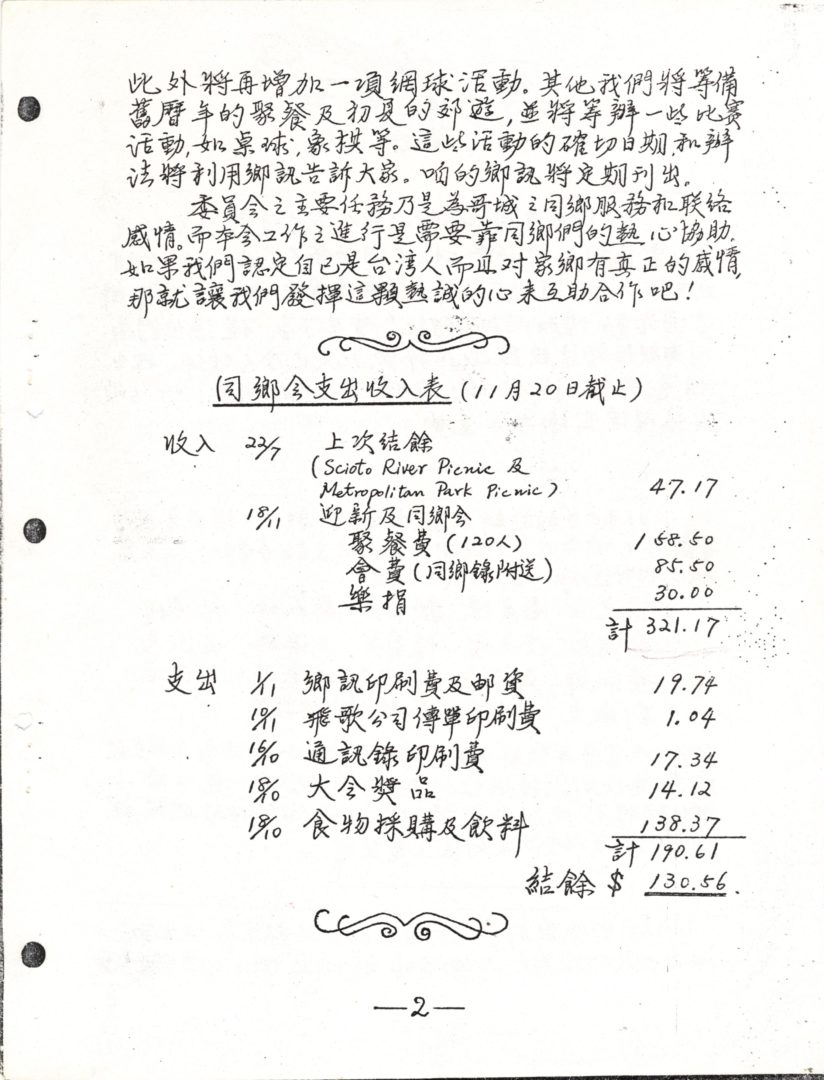 此外將再增加一項網球活動。其他我們將筹備
舊曆年的聚餐及初夏的郊遊,並將筹辦一些比賽
活動,如桌球,象棋等。這些活動的確切日期和辦
法將利用鄉訊告訴大家。咱的鄉訊將定期刊出。
委員会之主要任務乃是為哥城之同鄉服務和联絡
感情。而本会工作之進行是需要靠同鄉們的熱心協助.
如果我們認定自己是台湾人而且对家鄉有真正的感情,
那就讓我們發揮這顆熱誠的心来互助合作吧!
同鄉会支出收入表 (11月20日截止)
收入 22/7 上次结餘
(Scioto River Picnic 及
Metropolitan Park Picnic) 47.17
18/11 迎新及同鄉会
聚餐費 (120人) 158.50
會費 (同鄉錄附送) 85.50
樂捐 30.00
計 321.17
支出 1/11 鄉訊印刷費及邮资 19.74
10/1 飛歌公司傳單印刷費 1.04
15/10 通訊錄印刷費 17.34
18/10 大会獎品 14.12
18/10 食物採購及飲料 138.37
計 190.61
結餘 $ 130.56.
—2—